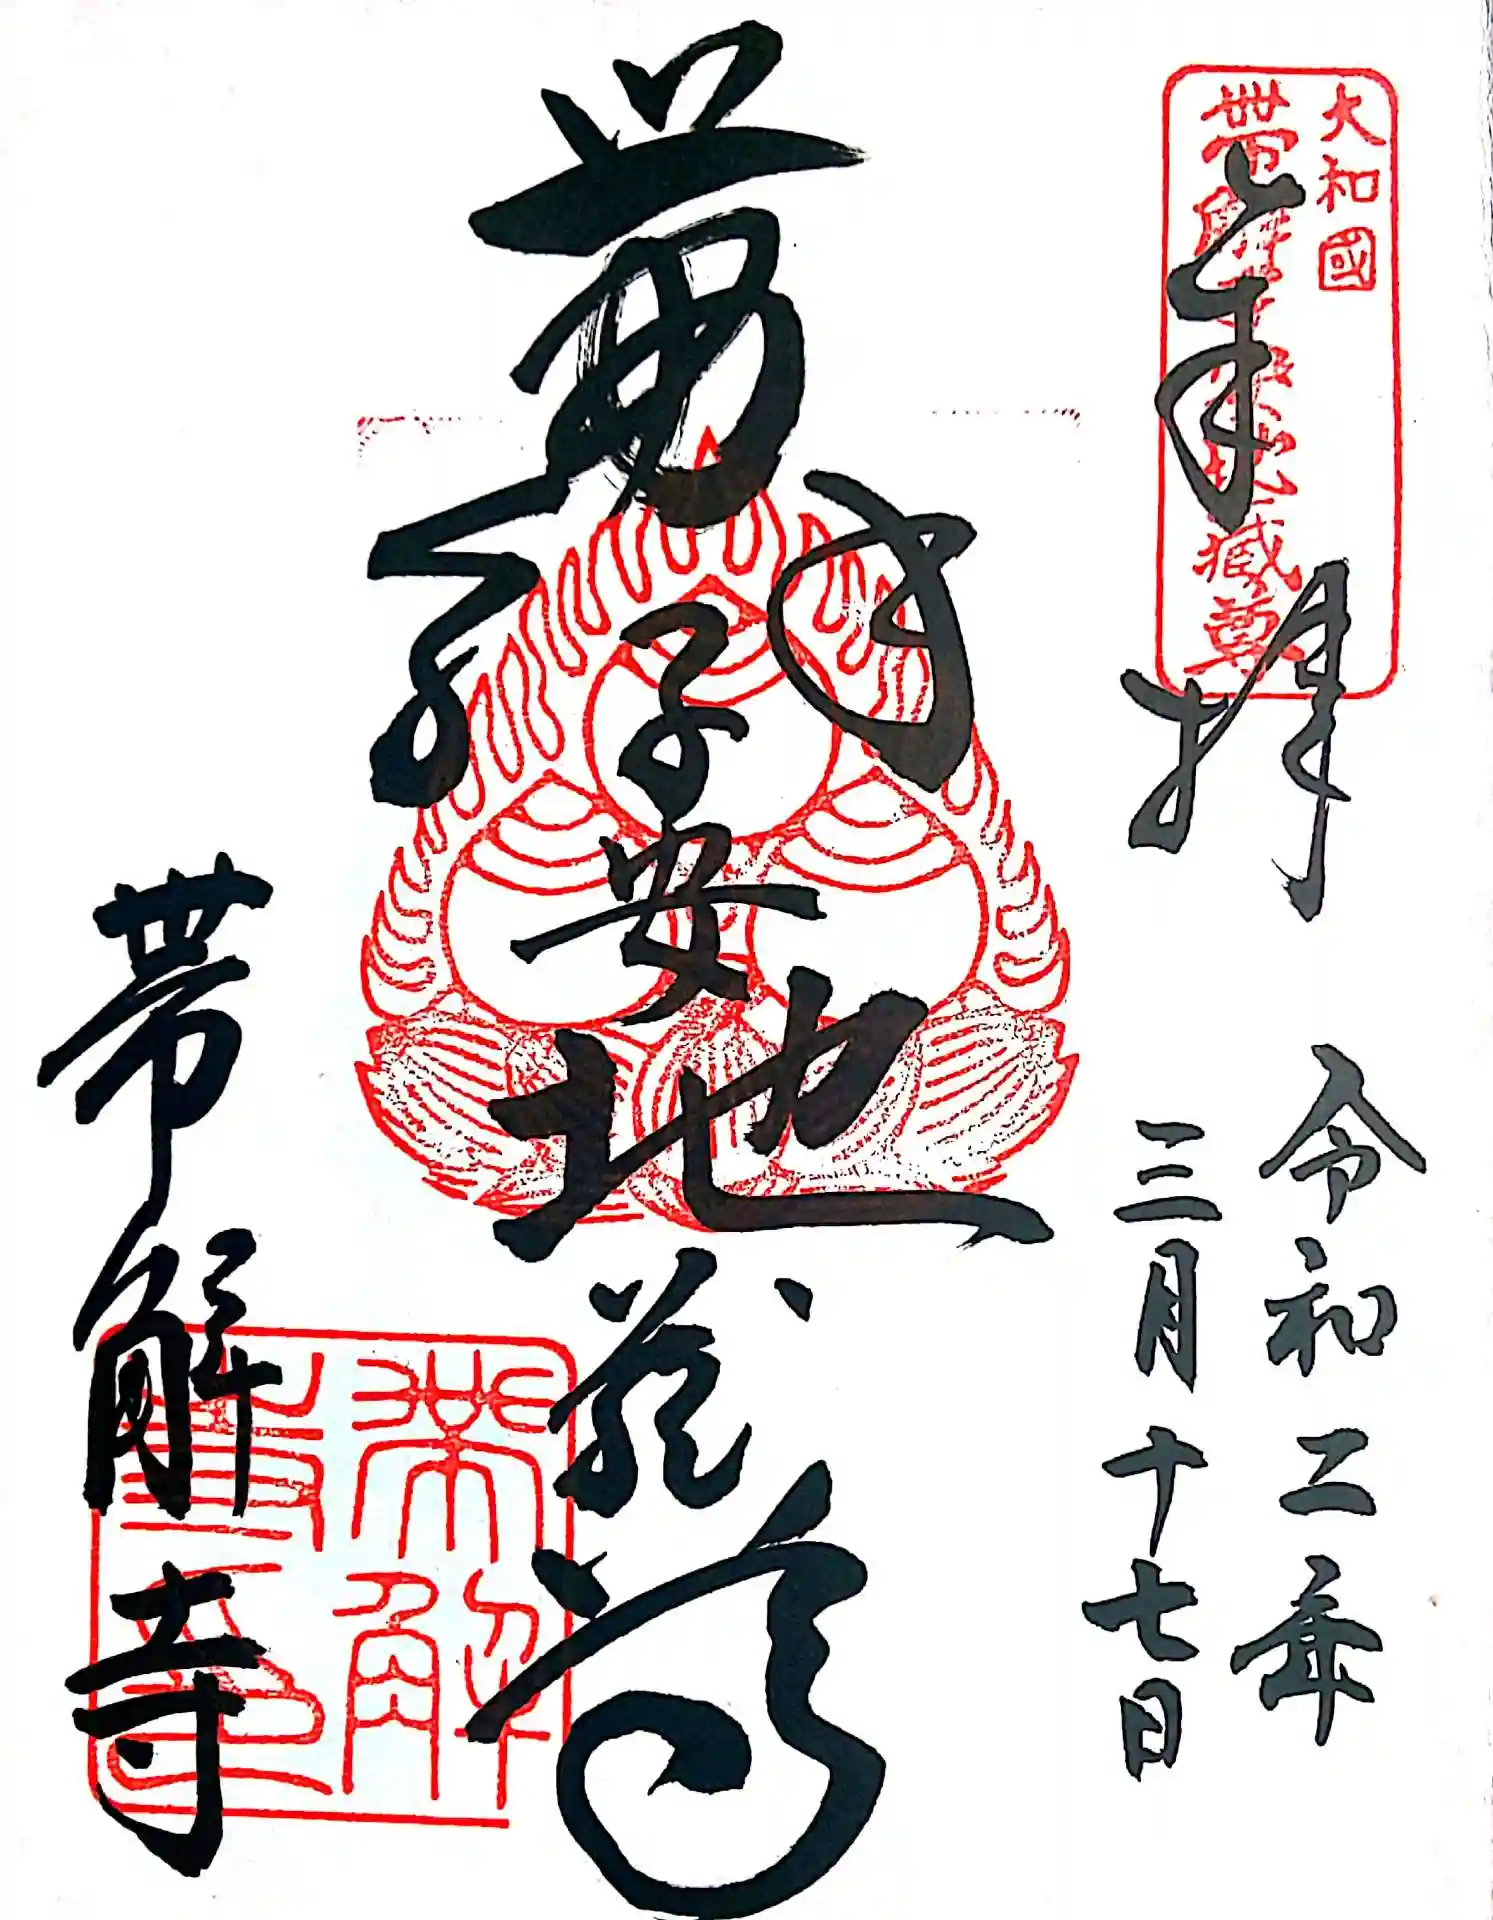 大和國
帯解子安地蔵尊
奉拝
令和二年
三月十七日
子安地蔵尊
帯解寺
帯解
寺印